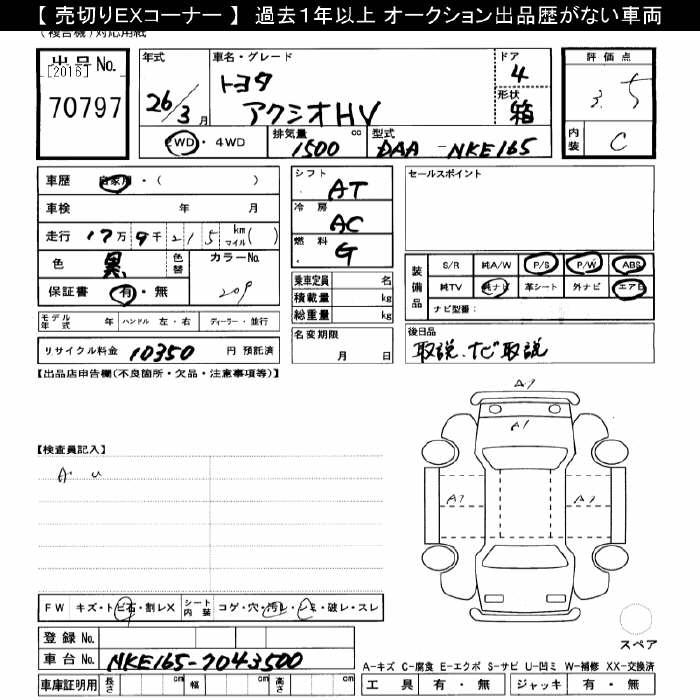 【 売切りEXコーナー 】 過去１年以上 オークション出品歴がない車両
(複合機) 対応用紙
出品No.
[2016]
70797
年式
26/3月
車名・グレード
トヨタ
アクシオHV
ドア
4
形状
箱
評価点
3.5
内装
C
2WD・4WD
排気量
1500 cc
型式
DAA-NKE165
車歴
自家用・( )
車検 年 月
走行 17万9千215 km マイル( )
色
黒
色替
カラーNo.
209
保証書 有・無
シフト
AT
冷房
AC
燃料
G
乗車定員 名
積載量 kg
総重量 kg
名変期限
月 日
セールスポイント
装備品
S/R 純A/W P/S P/W ABS
純TV 純ナビ 革シート 外ナビ エアB
ナビ型番：
後日品
取説、ナビ取説
モデル年式 年 ハンドル 左・右 ディーラー・並行
リサイクル料金 10350 円 預託済
【出品店申告欄(不良箇所・欠品・注意事項等)】
【検査員記入】
A U
A1
A1
A1
A1
スペア
FW キズ・トビ石・割レX シート内装 コゲ・穴・汚レ・シミ・破レ・スレ
登録 No.
車台 No. NKE165-7043500
車庫証明用 長さ cm 幅 cm 高さ cm
A-キズ C-腐食 E-エクボ S-サビ U-凹ミ W-補修 XX-交換済
工具 有・無 ジャッキ 有・無